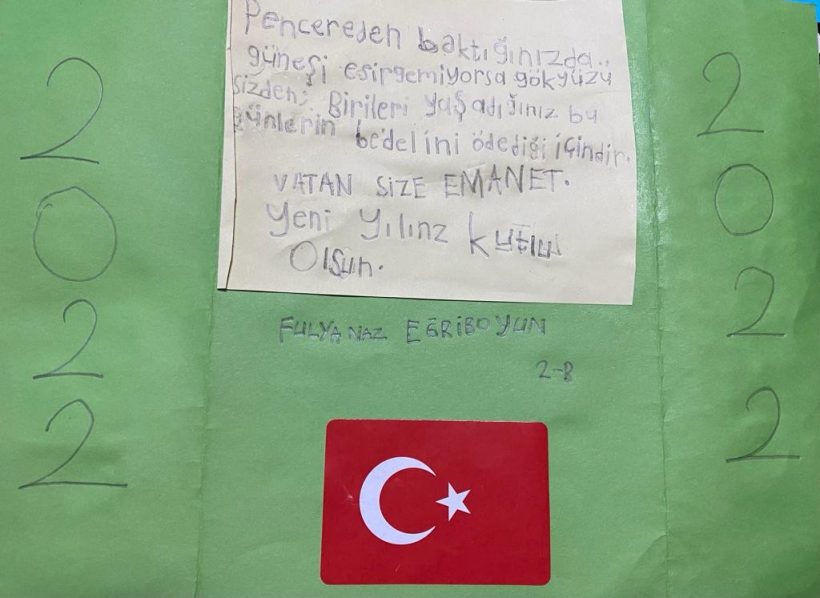 Pencereden baktığınızda..
güneşi esirgemiyorsa gökyüzü
sizden; Birileri yaşadığınız bu
günlerin bedelini ödediği içindir.
VATAN SİZE EMANET.
Yeni yılınz kutlu
Olsun.
FULYA NAZ EĞRİBOYUN
2-B
2
0
2
2
2
0
2
2